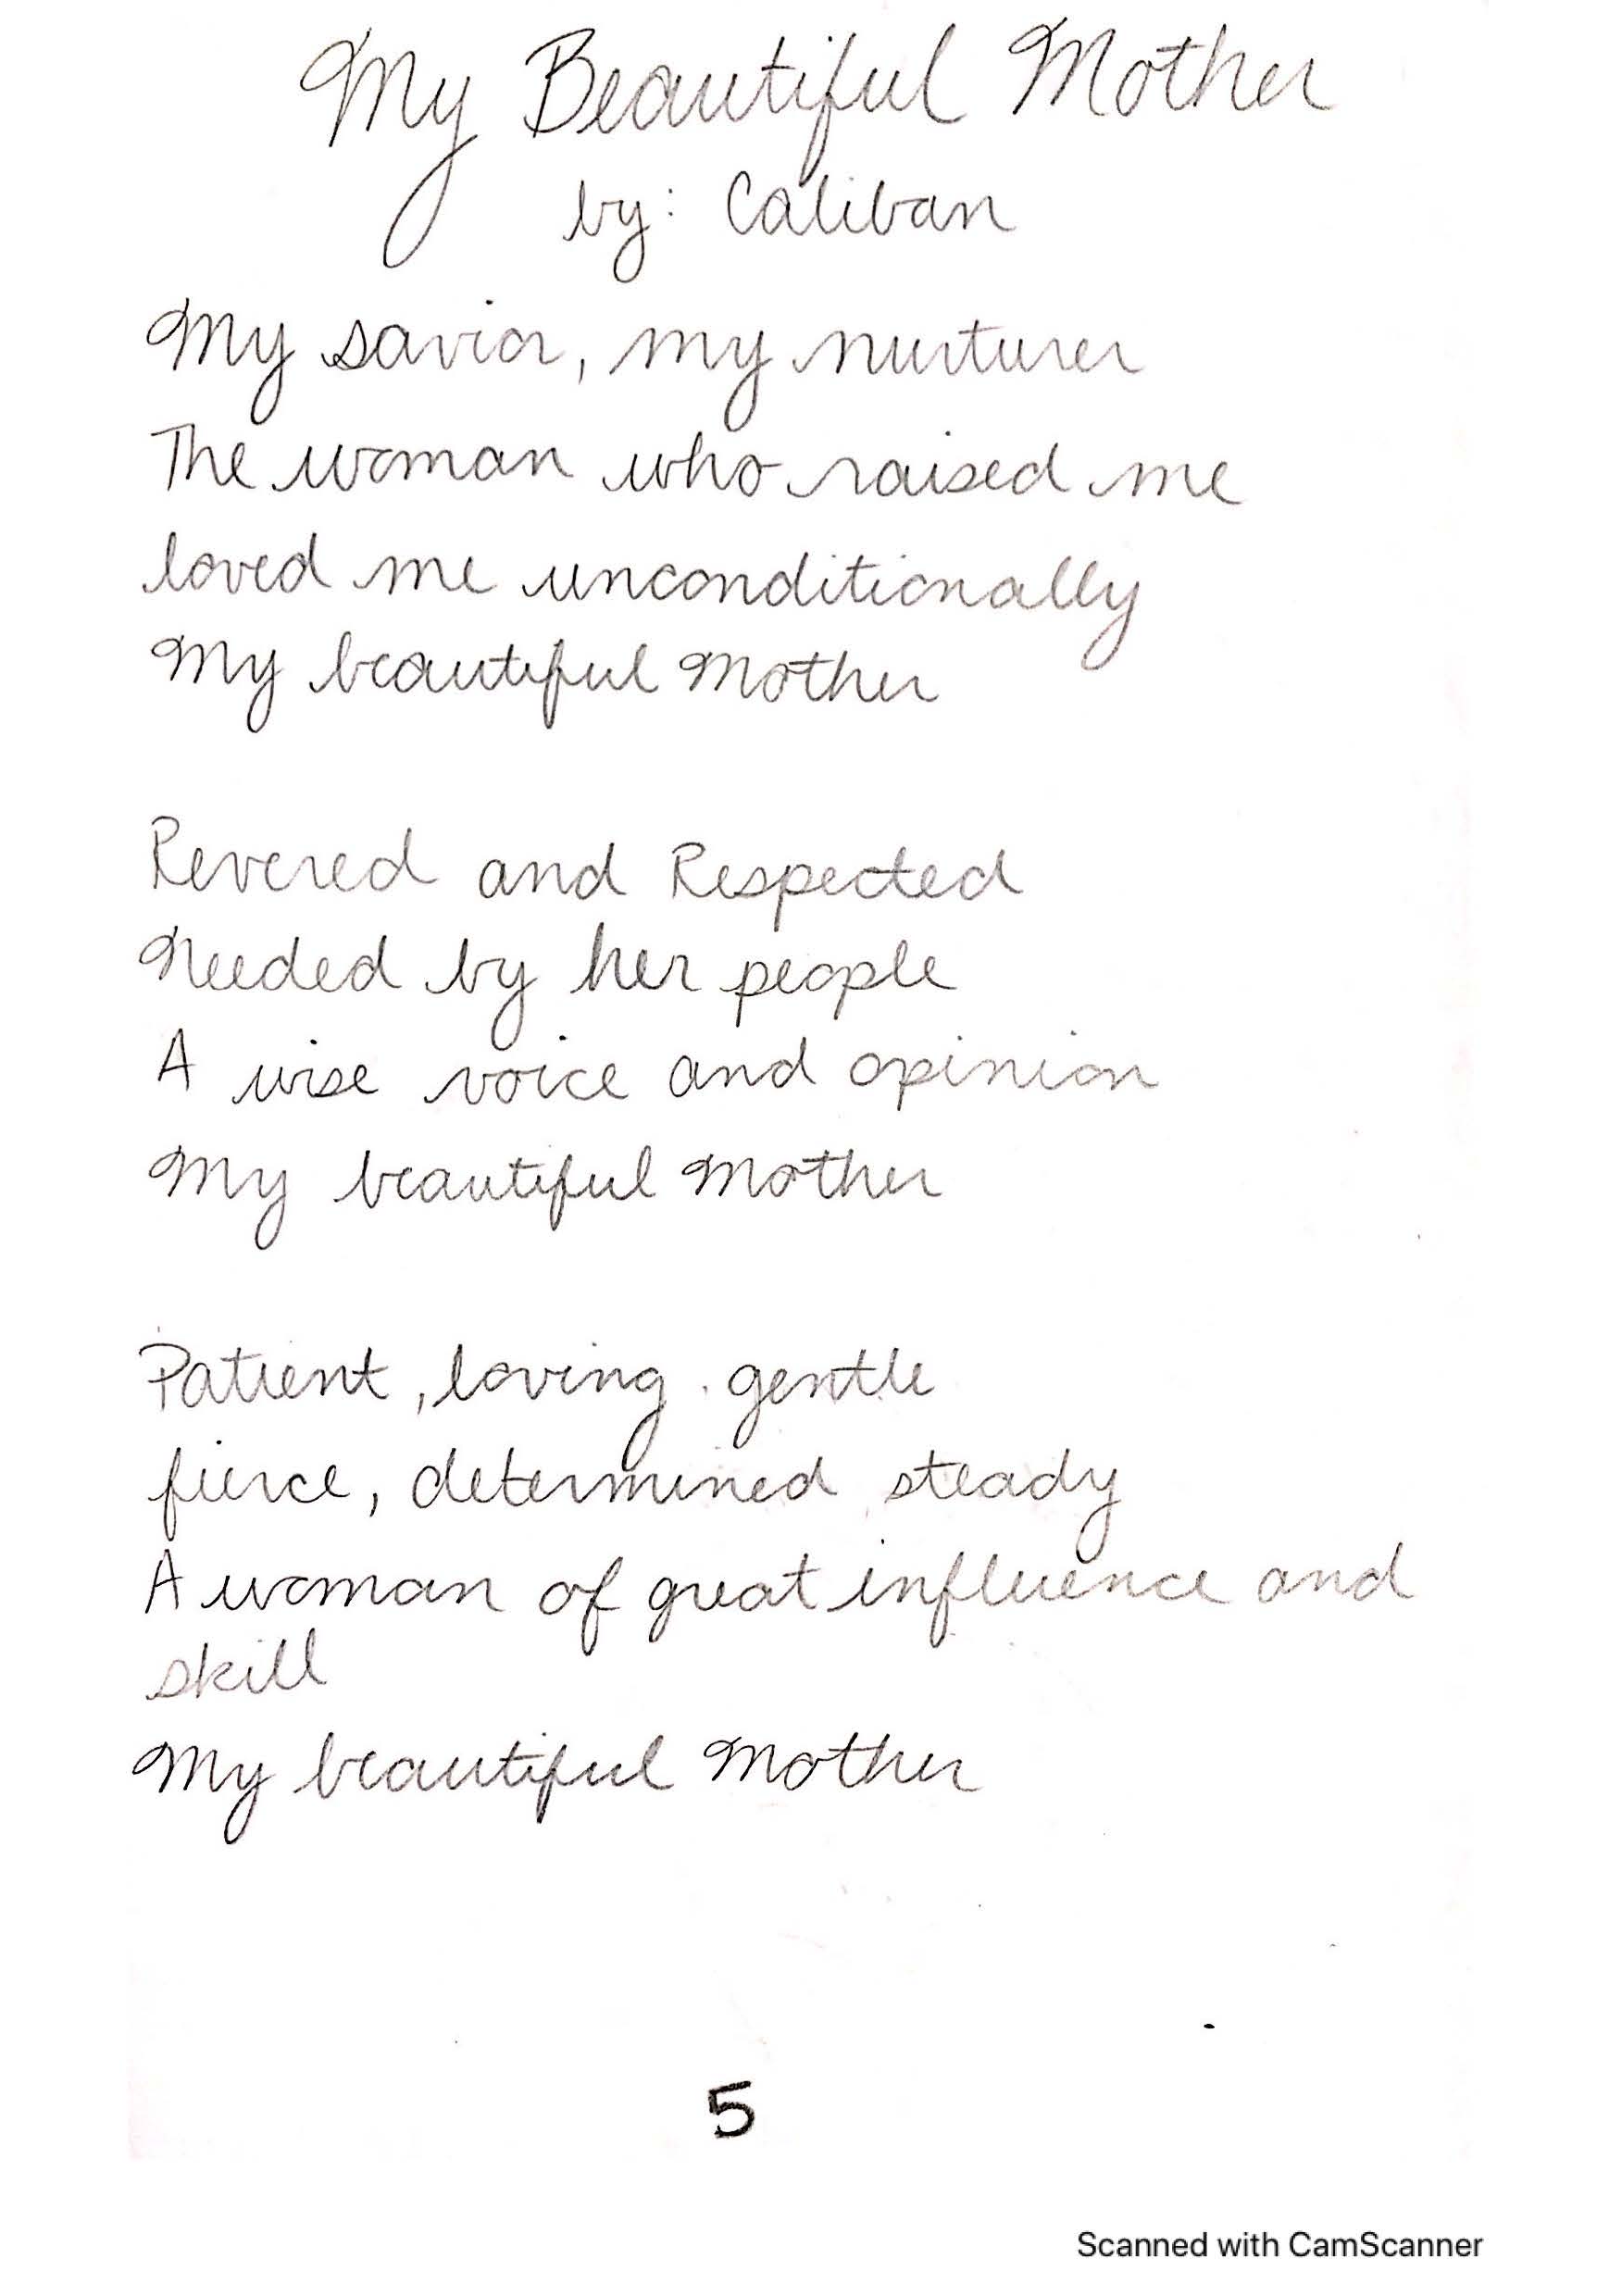 My Beautiful Mother
by: Caliban
My savior, my nurturer
The woman who raised me
loved me unconditionally
My beautiful Mother
Revered and Respected
Needed by her people
A wise voice and opinion
My beautiful Mother
Patient, loving. gentle
fierce, determined steady
A woman of great influence and
skill
My beautiful Mother
5
Scanned with CamScanner